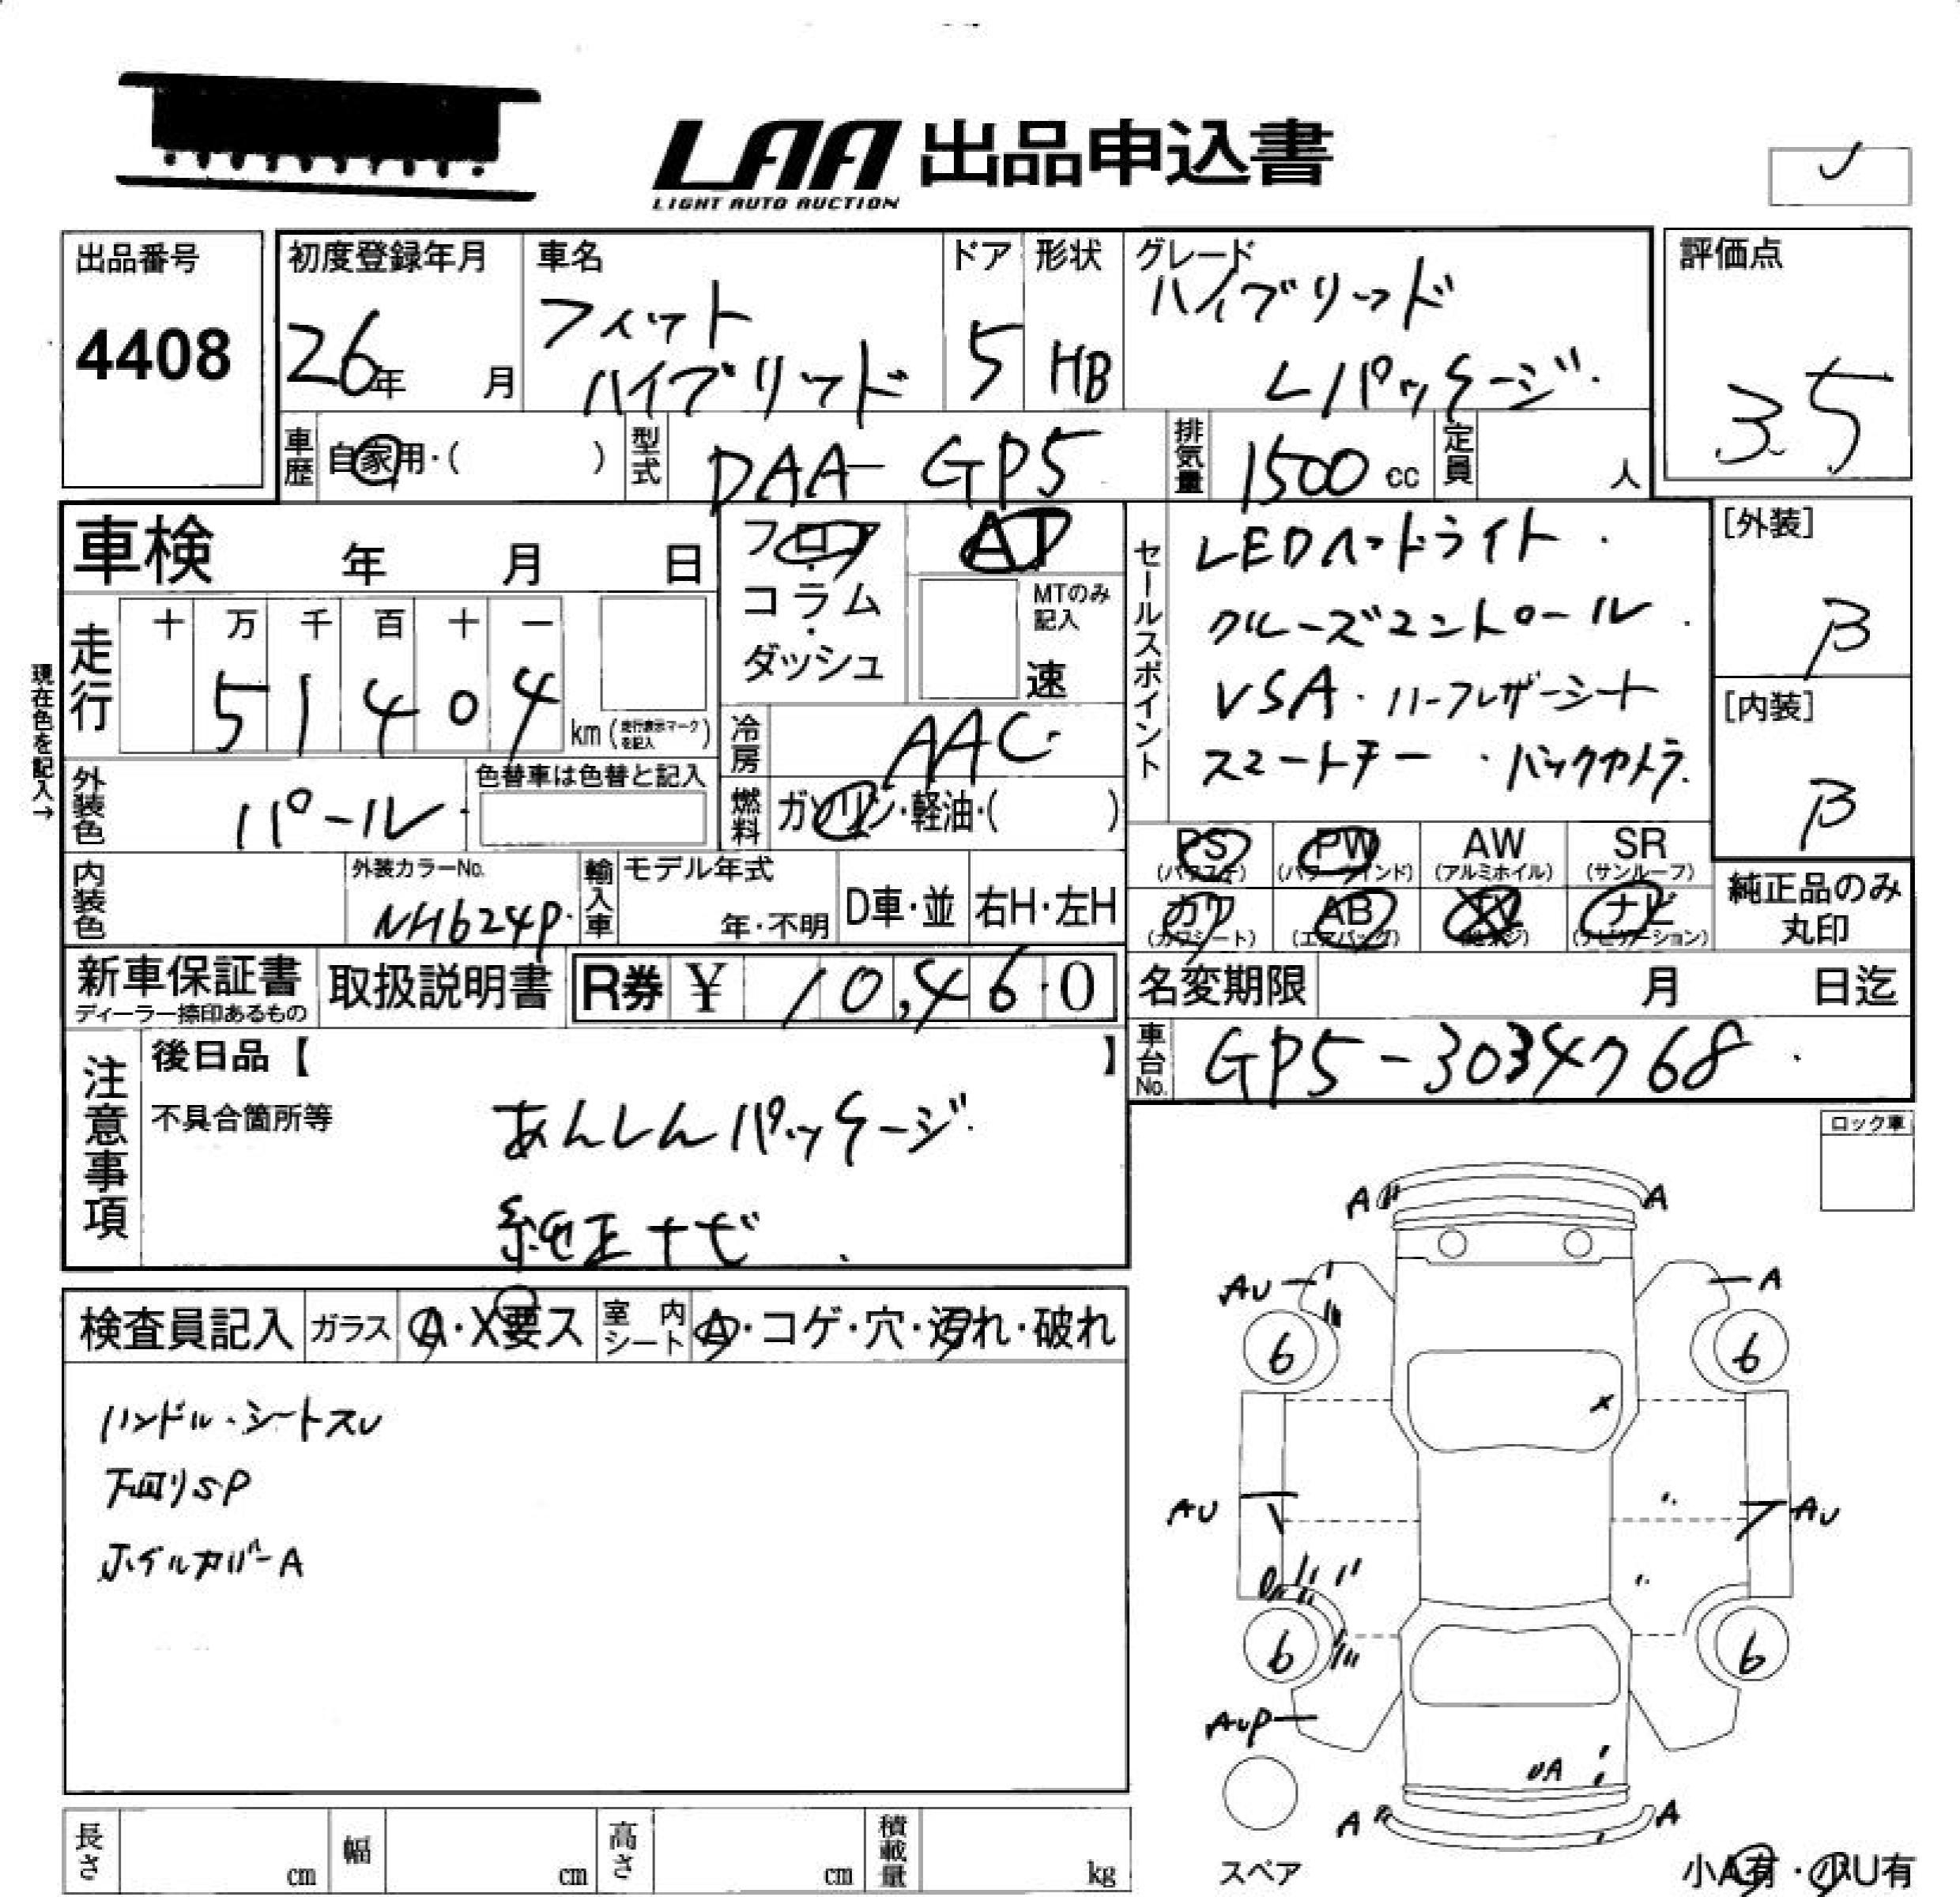 LAA 出品申込書
LIGHT AUTO AUCTION
出品番号
4408
初度登録年月
26年 月
車名
フィット
ハイブリッド
ドア
5
形状
HB
グレード
ハイブリッド
Lパッケージ
評価点
3.5
車歴
自家用・( )
型式
DAA-GP5
排気量
1500 cc
定員
人
車検 年 月 日
フロア
コラム
ダッシュ
AT
MTのみ
記入
速
走行
十 万 千 百 十 一
5 1 4 0 4
km (走行表示マークを記入)
現在色を記入→
冷房
AAC
燃料
ガソリン・軽油・( )
外装色
パール
色替車は色替と記入
内装色
外装カラーNo.
NH624P
輸入車
モデル年式
年・不明
D車・並
右H・左H
セールスポイント
LEDヘッドライト
クルーズコントロール
VSA・ハーフレザーシート
スマートキー・バックカメラ
[外装]
B
[内装]
B
PS
(パワステ)
PW
(パワーウインド)
AW
(アルミホイル)
SR
(サンルーフ)
カワ
(カワシート)
AB
(エアバッグ)
TV
ナビ
(ナビゲーション)
純正品のみ
丸印
新車保証書
ディーラー捺印あるもの
取扱説明書
R券 ¥ 10,460
名変期限 月 日迄
車台No.
GP5-3034768
注意事項
後日品【 】
不具合箇所等
あんしんパッケージ
純正ナビ
ロック車
検査員記入
ガラス
A・X要ス
室内シート
A・コゲ・穴・汚れ・破れ
ハンドル・シートスレ
下回りSP
ホイルカバーA
A
A
AU
A
6
6
X
AU
AU
6
6
AUP
UA
A
A
スペア
小A有・小U有
長さ
cm
幅
cm
高さ
cm
積載量
kg